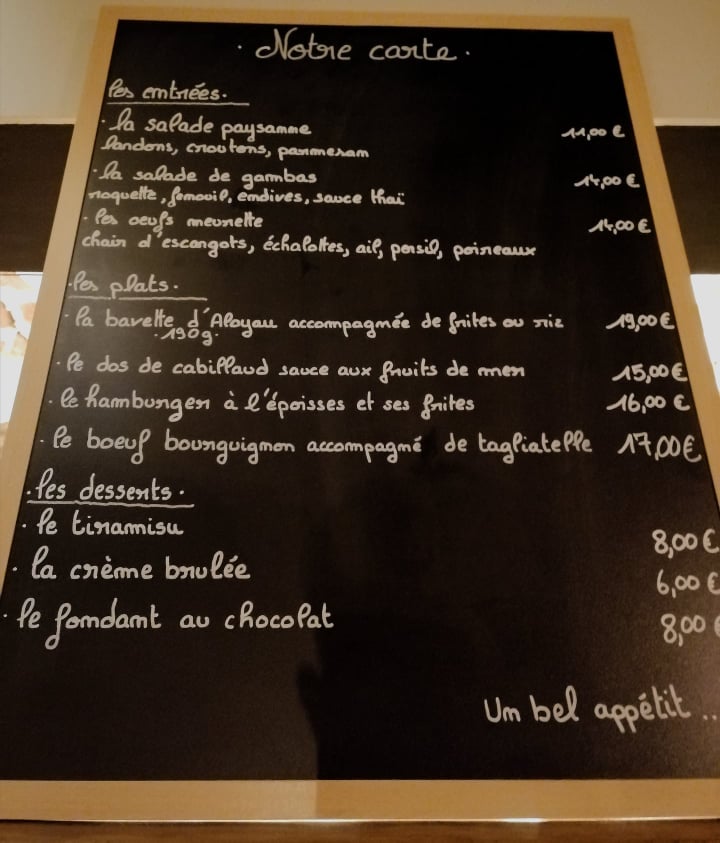 · Notre carte ·
les entrées ·
· la salade paysanne 11,00 €
lardons, croutons, parmesan
· la salade de gambas 14,00 €
roquette, fenouil, endives, sauce thaï
· les oeufs meurette 14,00 €
chair d'escargots, échalottes, ail, persil, poireaux
· les plats ·
· la bavette d'Aloyau accompagnée de frites ou riz 19,00 €
· 190g ·
· le dos de cabillaud sauce aux fruits de mer 15,00 €
· le hamburger à l'époisses et ses frites 16,00 €
· le boeuf bourguignon accompagné de tagliatelle 17,00 €
· les desserts ·
· le tiramisu 8,00 €
· la crème brulée 6,00 €
· le fondant au chocolat 8,00 €
Un bel appétit ..